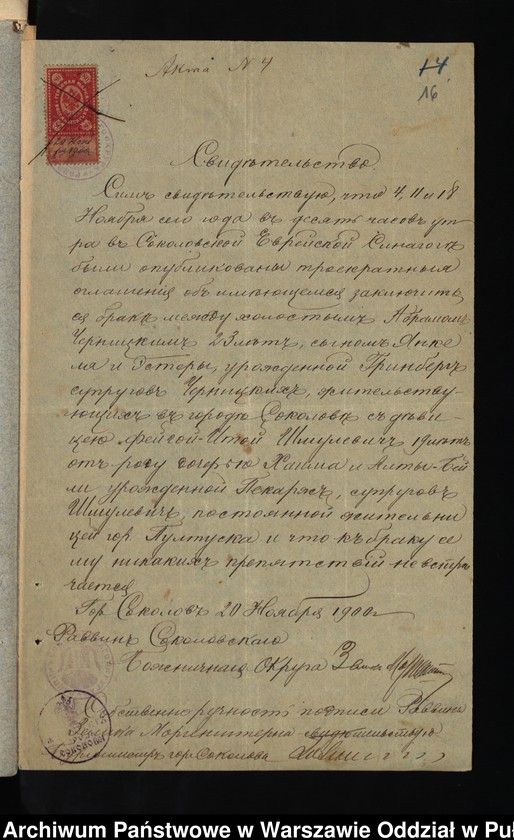 Акта N 4
14
16
Свидѣтельство
Симъ свидѣтельствую, что 4, 11 и 18
Ноября сего года въ десять часовъ ут-
ра въ Соколовской Еврейской Синагогѣ
были опубликованы троекратныя
оглашенія объ имѣющемся заключить
ся бракѣ между холостымъ Абрамомъ
Черницкимъ 23 лѣтъ, сыномъ Янке
ля и Эстеры, урожденной Гринбергъ
супруговъ Черницкихъ, жительству-
ющихъ въ городѣ Соколовѣ съ дѣви-
цею Фейгой-Итой Шмулевичъ 19 лѣтъ
отъ роду дочерью Хаима и Алты-Бей
ли урожденной Пекаржъ, супруговъ
Шмулевичъ, постоянной жительни
цей гор. Пултуска и что къ браку се
му никакихъ препятствій не встрѣ
чается
Гор. Соколовъ 20 Ноября 1900 г
Раввинъ Соколовскаго
Божничнаго Округа
Собственноручность подписи Раввина
Моргенштерна свидѣтельствую
гор. Соколова
Archiwum Państwowe w Warszawie Oddział w Pu